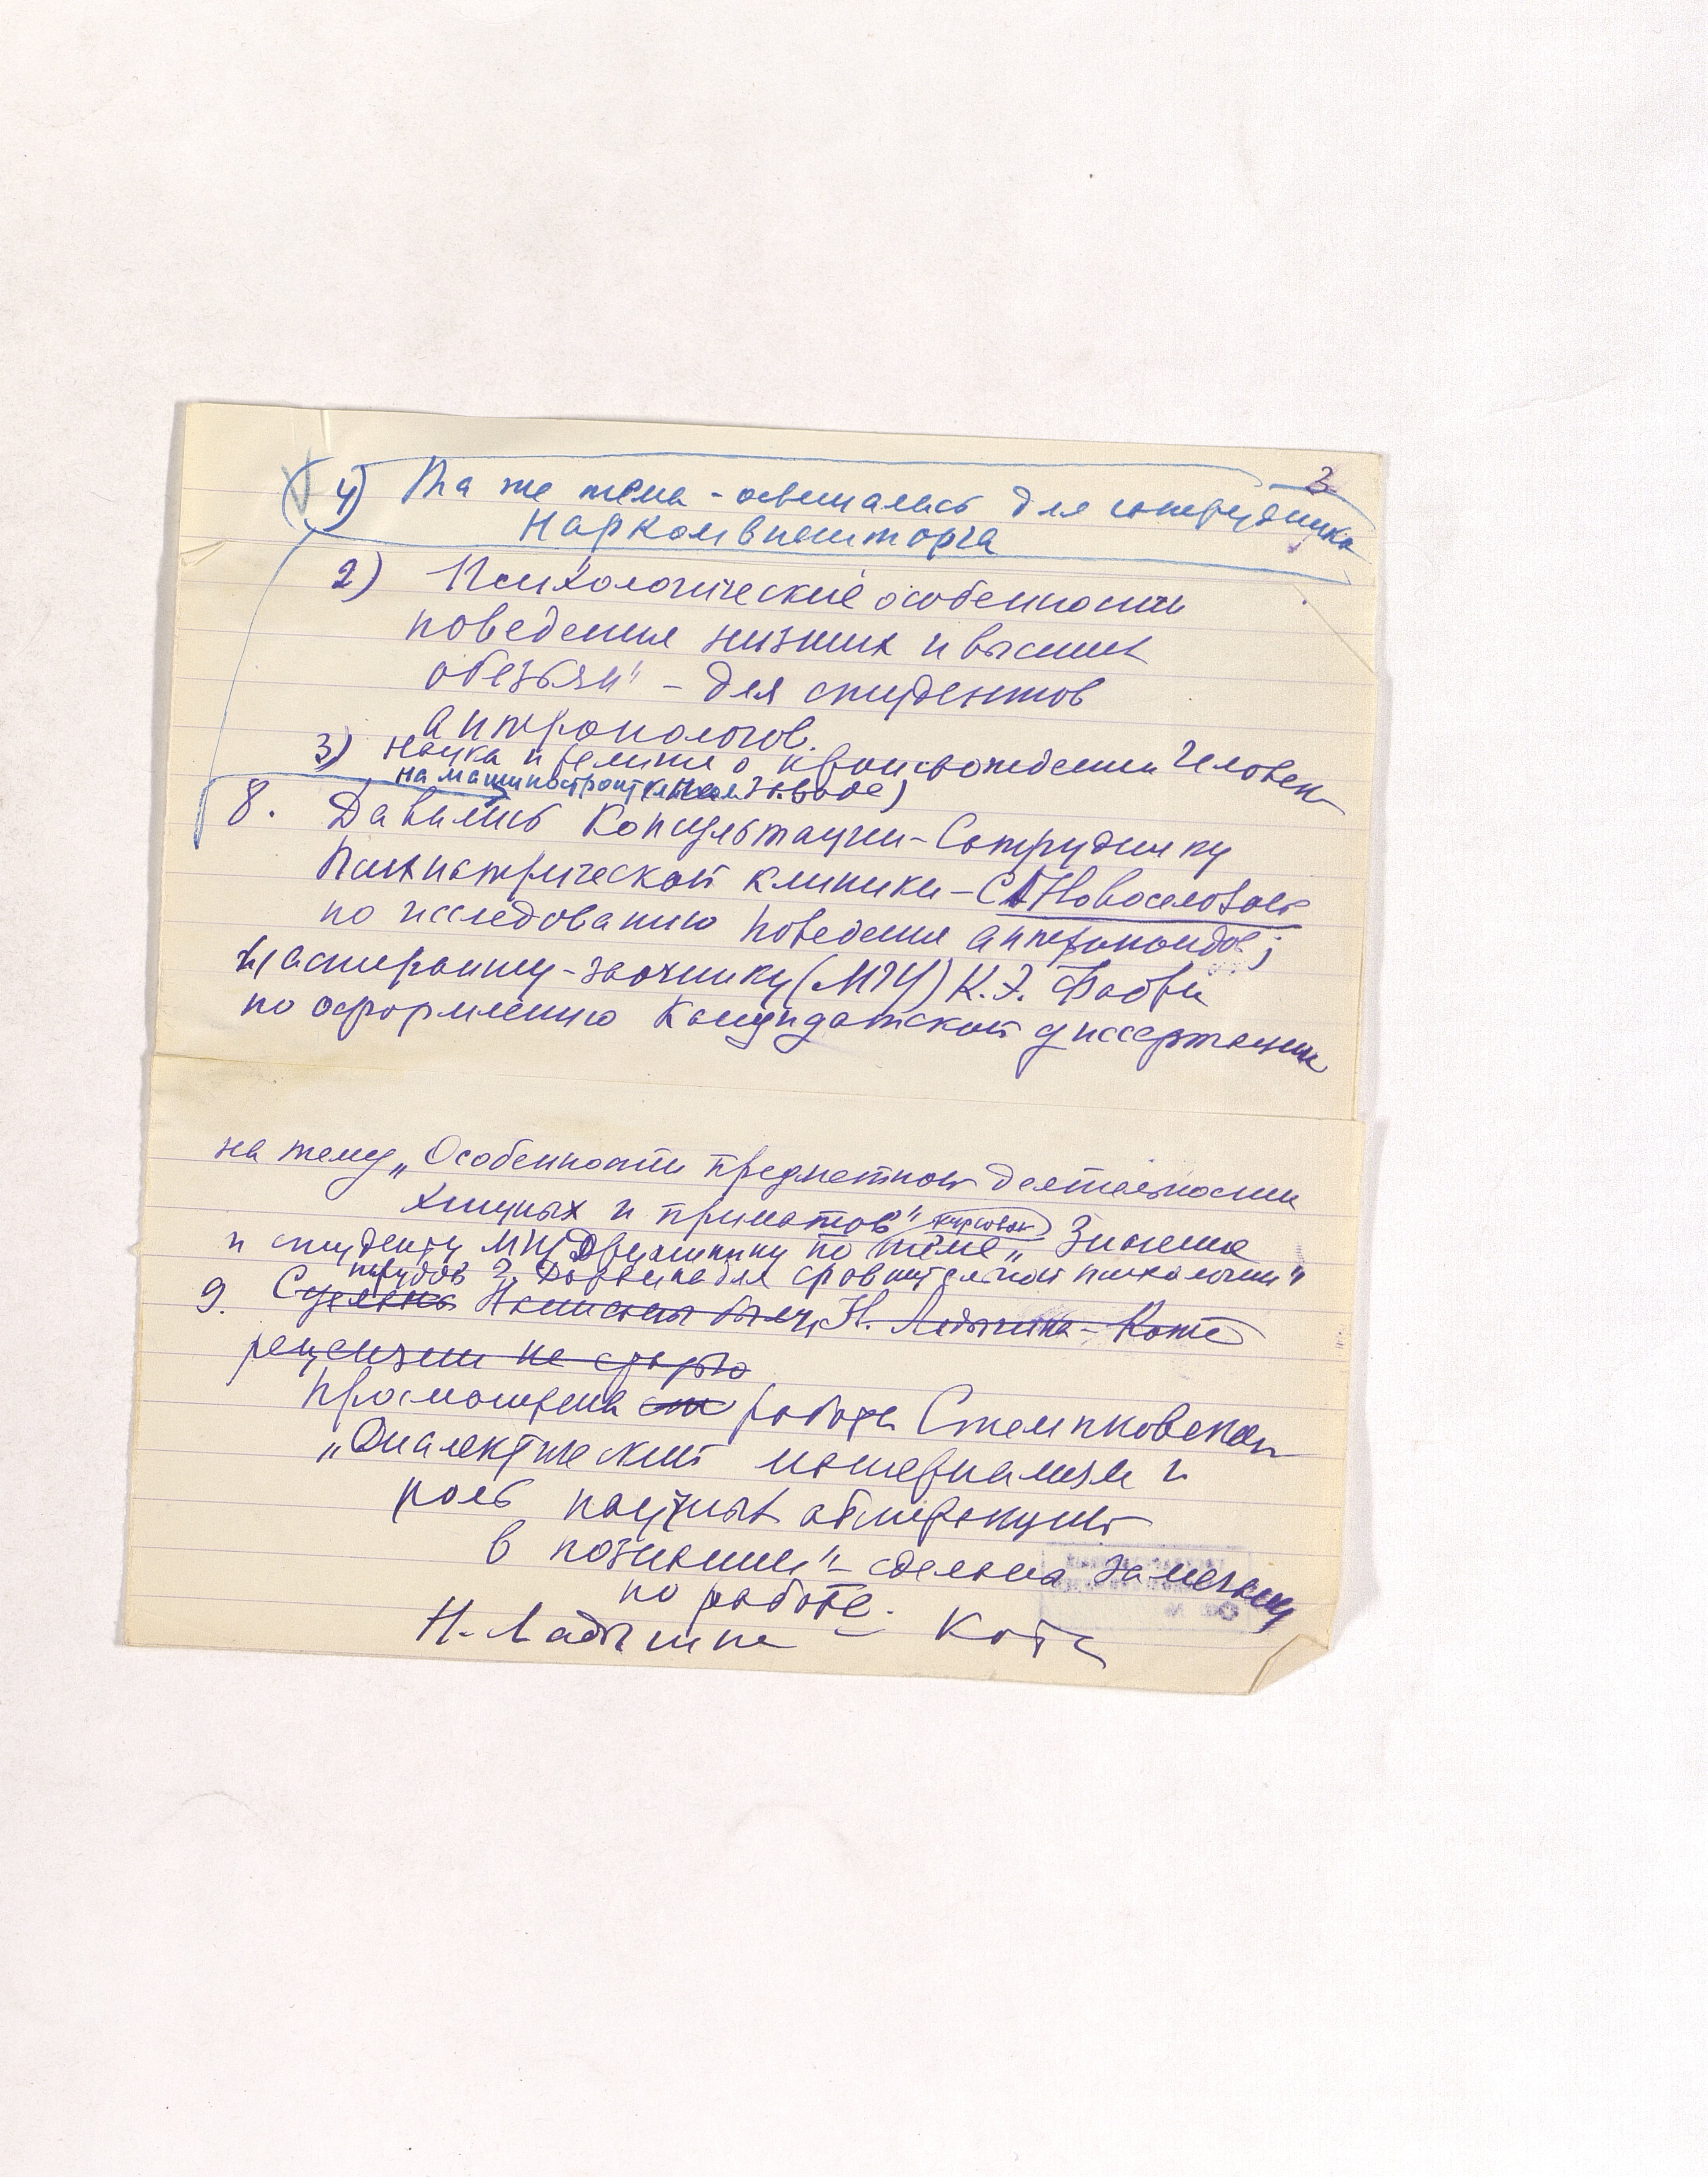 3
4) Та же тема - освещалась для сотрудника
Наркомвнешторга
2) Психологические особенности
поведения низших и высших
обезьян" - для студентов
антропологов.
3) Наука и религия о происхождении человека
на машиностроительном заводе)
8. Давались консультации - Сотруднику
Психиатрической клиники - С Новоселовой
по исследованию поведения антропоидов;
и аспиранту-заочнику (МГУ) К.Э. Фабри
по оформлению Кандидатской диссертации
на тему „Особенности предметной деятельности
хищных и приматов"
курсовой
и студенту МГУ по теме „Значение
трудов Ч. Дарвина для сравнительной психологии"
9. Сделаны Написаны Н. Ладыгина-Котс
рецензии не
Просмотрена работа Стемпковской
„Диалектический материализм и
роль научных абстракций
в познании" - сделана
по работе.
Н. Ладыгина - Котс